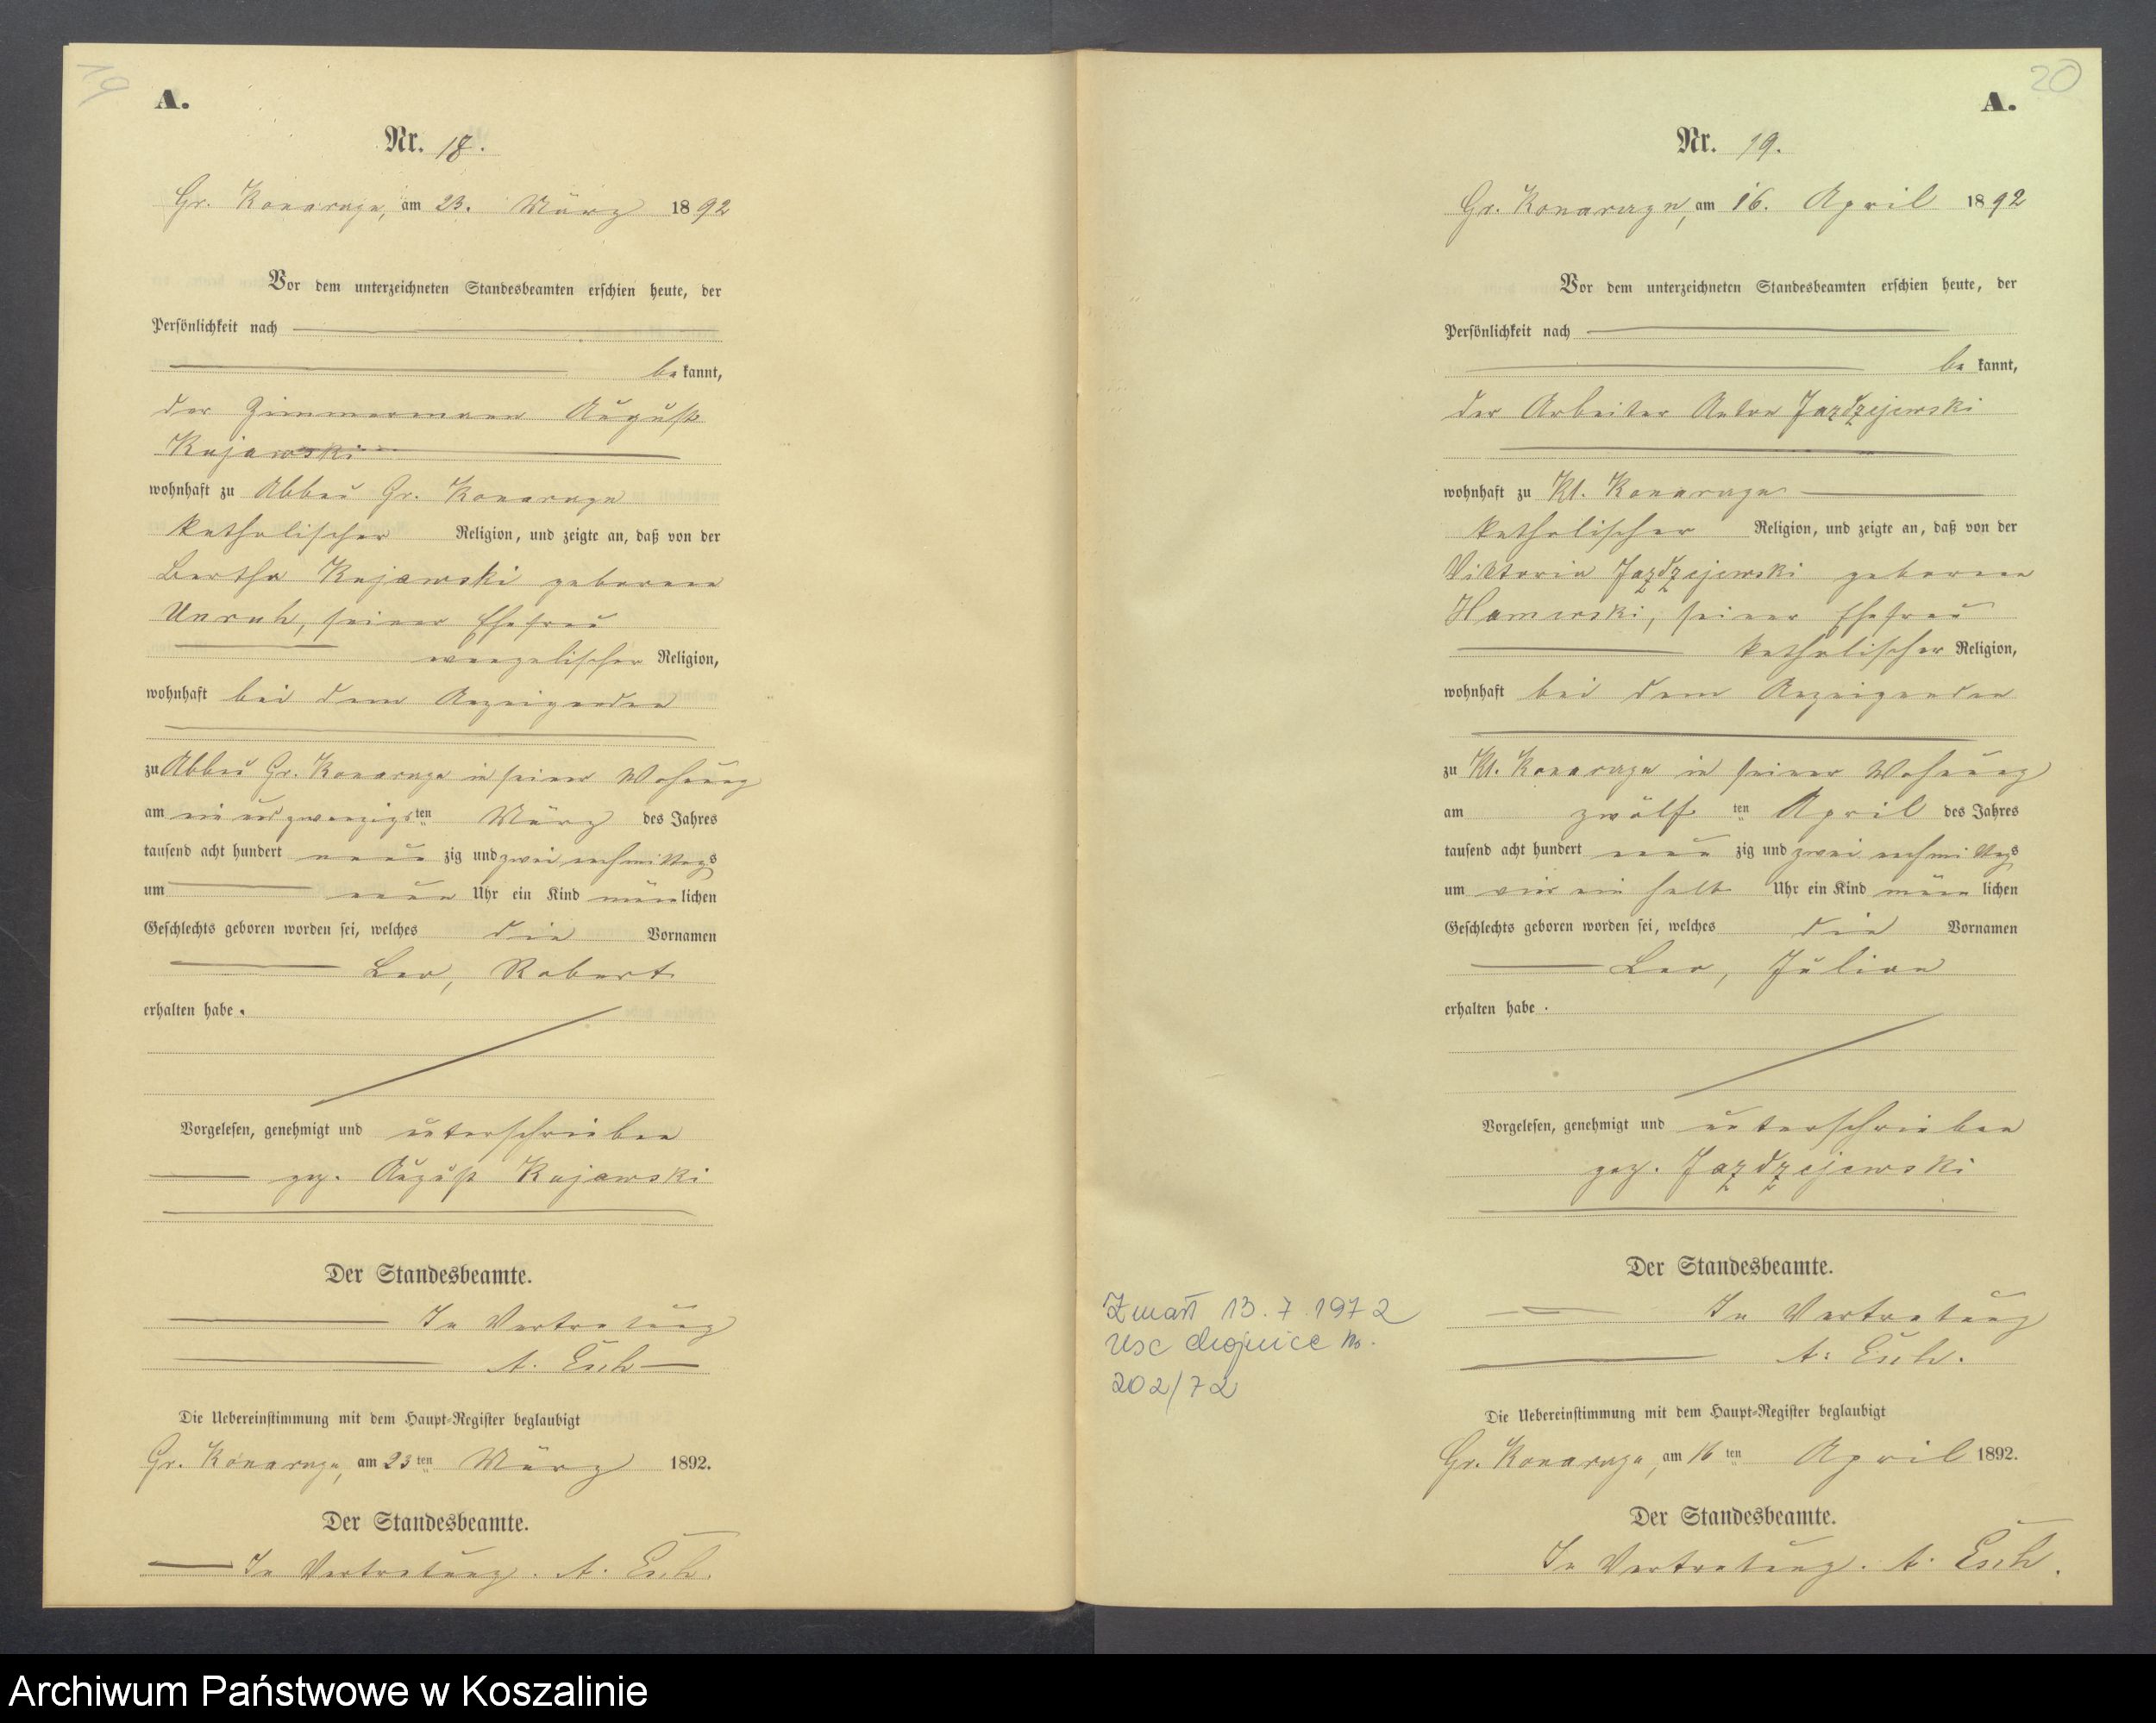 19
A.
Nr. 18.
Gr. Konarzyn, am 23. März 1892
Vor dem unterzeichneten Standesbeamten erschien heute, der
Persönlichkeit nach
be kannt,
der Zimmermann August
Kujawski
wohnhaft zu Abbau Gr. Konarzyn
katholischer Religion, und zeigte an, daß von der
Bertha Kujawski geborene
Unruh, seiner Ehefrau
evangelischer Religion,
wohnhaft bei dem Anzeigenden
zu Abbau Gr. Konarzyn in seiner Wohnung
am ein und zwanzigsten März des Jahres
tausend acht hundert neun zig und zwei nachmittags
um neun Uhr ein Kind männlichen
Geschlechts geboren worden sei, welches die Vornamen
Leo, Robert
erhalten habe.
Vorgelesen, genehmigt und unterschrieben
gez. August Kujawski
Der Standesbeamte.
In Vertretung
A. Esch
Die Uebereinstimmung mit dem Haupt-Register beglaubigt
Gr. Konarzyn, am 23ten März 1892.
Der Standesbeamte.
In Vertretung. A. Esch.
20
A.
Nr. 19.
Gr. Konarzyn, am 16. April 1892
Vor dem unterzeichneten Standesbeamten erschien heute, der
Persönlichkeit nach
be kannt,
der Arbeiter Anton Jazdzejewski
wohnhaft zu Kl. Konarzyn
katholischer Religion, und zeigte an, daß von der
Viktoria Jazdzejewski geborene
Hamerski, seiner Ehefrau
katholischer Religion,
wohnhaft bei dem Anzeigenden
zu Kl. Konarzyn in seiner Wohnung
am zwölf ten April des Jahres
tausend acht hundert neun zig und zwei nachmittags
um vier ein halb Uhr ein Kind männ lichen
Geschlechts geboren worden sei, welches die Vornamen
Leo, Julian
erhalten habe.
Vorgelesen, genehmigt und unterschrieben
gez. Jazdzejewski
Zmarł 13.7.1972
USC Chojnice No.
202/72
Der Standesbeamte.
In Vertretung
A. Esch.
Die Uebereinstimmung mit dem Haupt-Register beglaubigt
Gr. Konarzyn, am 16 ten April 1892.
Der Standesbeamte.
In Vertretung. A. Esch.
Archiwum Państwowe w Koszalinie